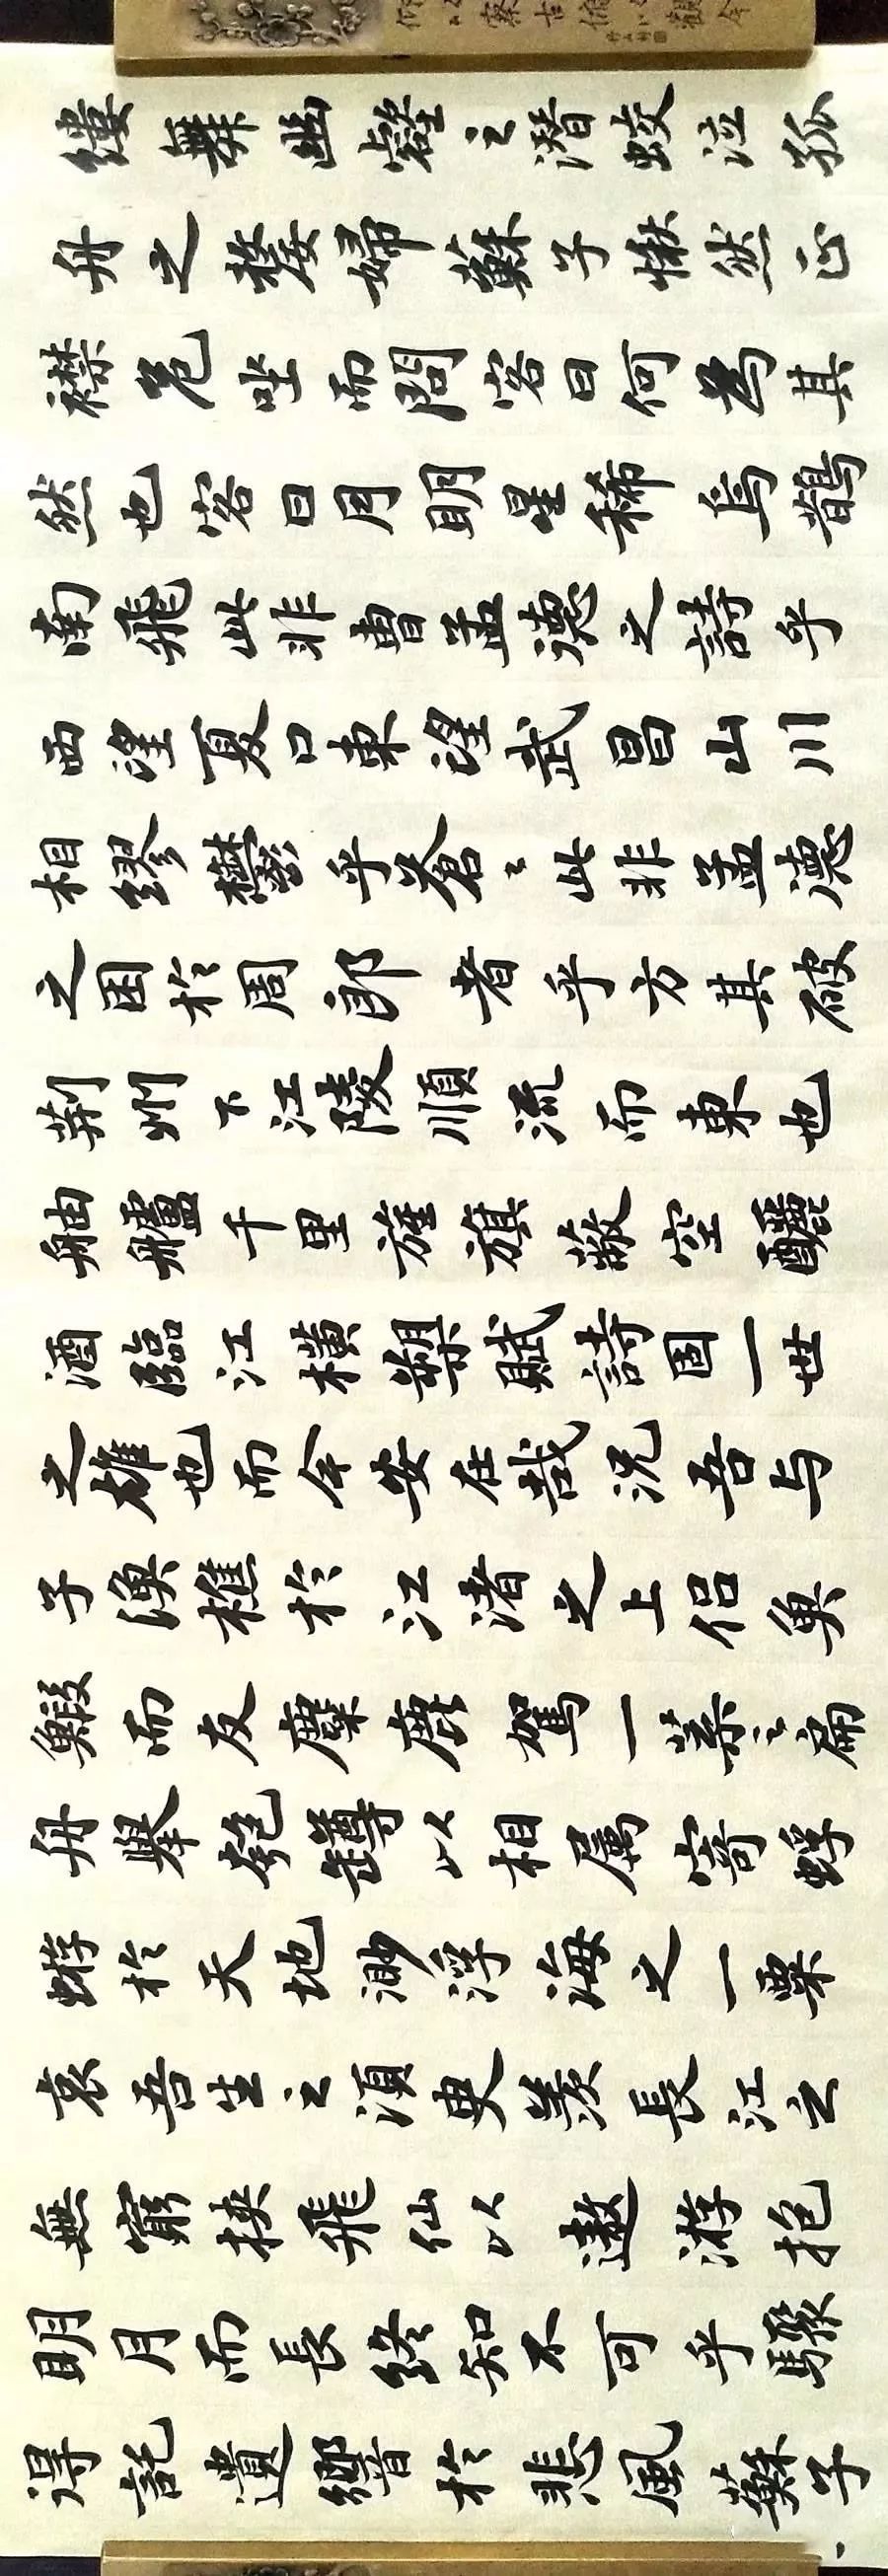 仰以察古俯以觀今
縷舞幽壑之潛蛟泣孤
舟之嫠婦蘇子愀然正
襟危坐而問客曰何為其
然也客曰月明星稀烏鵲
南飛此非曹孟德之詩乎
西望夏口東望武昌山川
相繆鬱乎蒼〻此非孟德
之困於周郎者乎方其破
荊州下江陵順流而東也
舳艫千里旌旗蔽空釃
酒臨江橫槊賦詩固一世
之雄也而今安在哉況吾与
子漁樵於江渚之上侶魚
鰕而友麋鹿駕一葉之扁
舟舉匏罇以相屬寄蜉
蝣於天地渺浮海之一粟
哀吾生之須臾羨長江之
無窮挾飛仙以遨游抱
明月而長終知不可乎驟
得託遺響於悲風蘇子